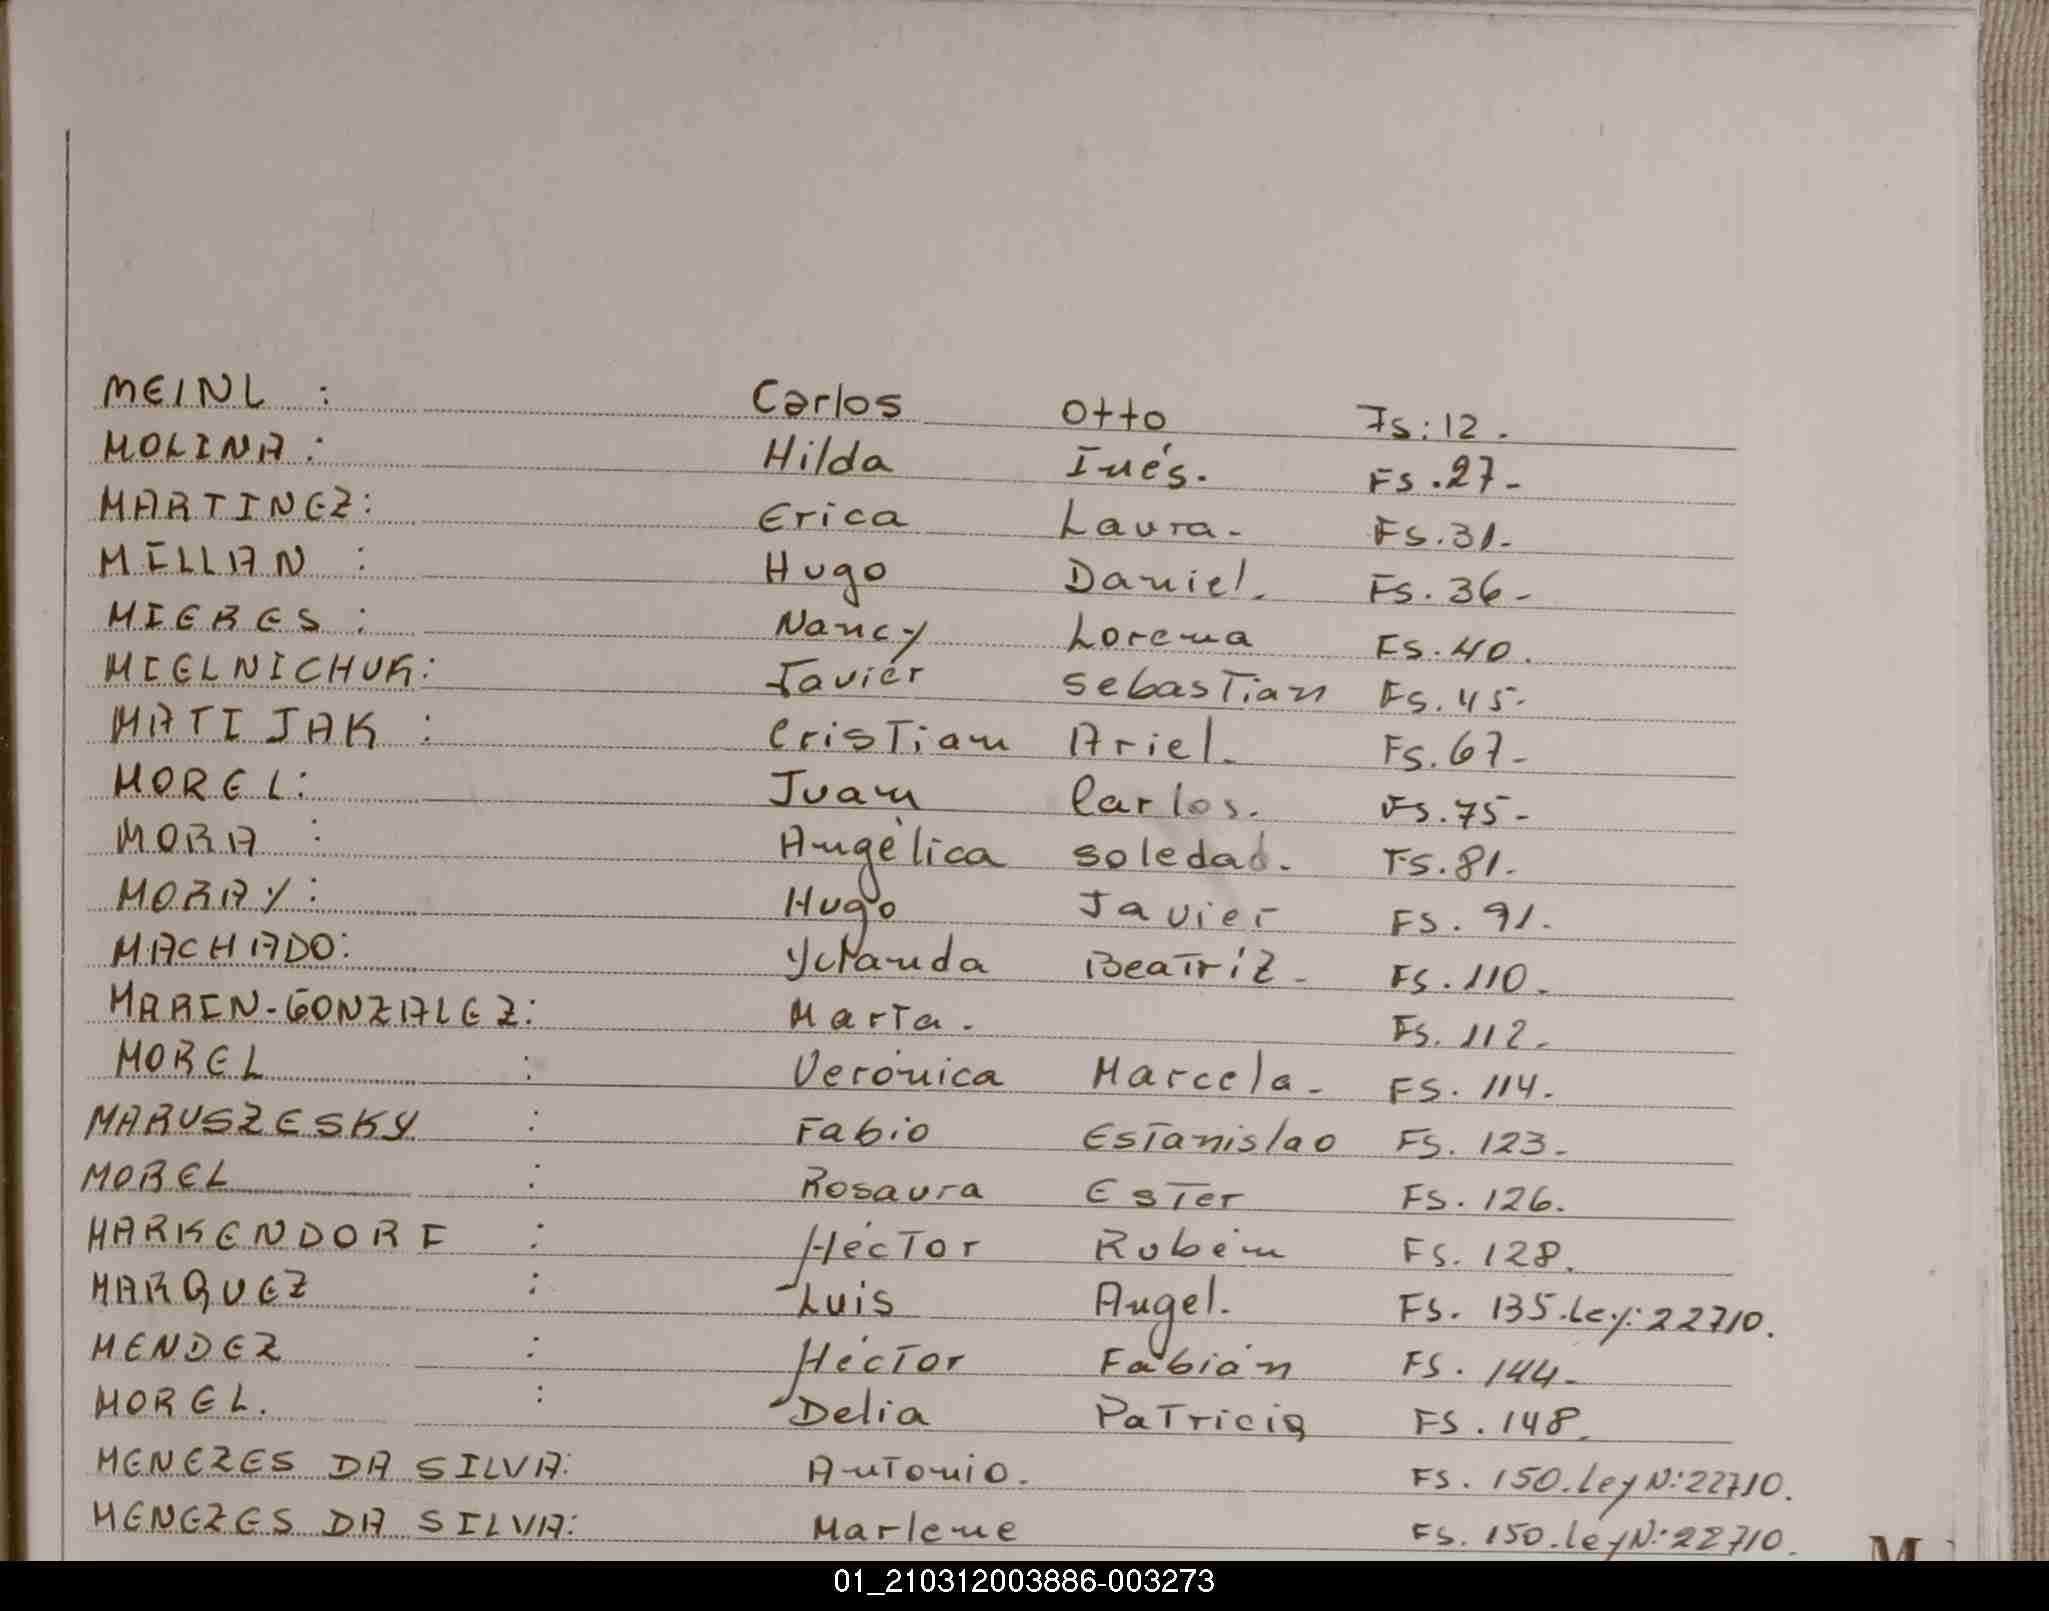 MEINL : Carlos Otto Fs: 12.
MOLINA: Hilda Inés. Fs. 27-
MARTINEZ: Erica Laura- Fs. 31-
MILLAN : Hugo Daniel. Fs. 36-
MIERES : Nancy Lorena Fs. 40.
MIELNICHUK: Javier SebasTian Fs. 45-
MATIJAK : CrisTian Ariel. Fs. 67-
MOREL: Juan Carlos. Fs. 75-
MORA : Angélica Soledad. Fs. 81-
MORAY: Hugo Javier Fs. 91.
MACHADO: Yolanda BeaTriz- Fs. 110-
MARIN-GONZALEZ: MarTa. Fs. 112-
MOREL : Verónica Marcela- Fs. 114.
MARUSZESKY : Fabio EsTanislao Fs. 123-
MOREL : Rosaura EsTer Fs. 126.
MARKENDORF : HécTor Rubén Fs. 128.
MARQUEZ : Luis Angel. Fs. 135. Ley: 22710.
MENDEZ : HécTor Fabián Fs. 144-
MOREL. : Delia PaTricia Fs. 148.
MENEZES DA SILVA: AnTonio. Fs. 150. Ley N: 22710.
MENEZES DA SILVA: Marlene Fs. 150. Ley N: 22710.
M
01_210312003886-003273